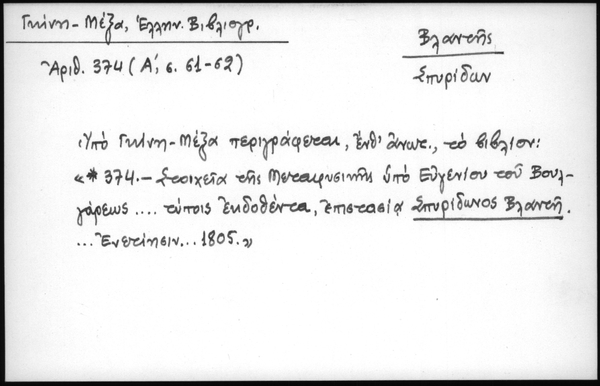 Γκίνη-Μέξα, Ἑλλην. Βιβλιογρ.
Ἀριθ. 374 (Α΄, σ. 61-62)
Βλαντῆς
Σπυρίδων
Ὑπὸ Γκίνη-Μέξα περιγράφεται, ἔνθ' ἀνωτ., τὸ βιβλίον:
«*374.- Στοιχεῖα τῆς Μεταφυσικῆς ὑπὸ Εὐγενίου τοῦ Βουλ-
γάρεως .... τύποις ἐκδοθέντα, ἐπιστασίᾳ Σπυρίδωνος Βλαντῆ.
... Ἐνετίησιν... 1805.»